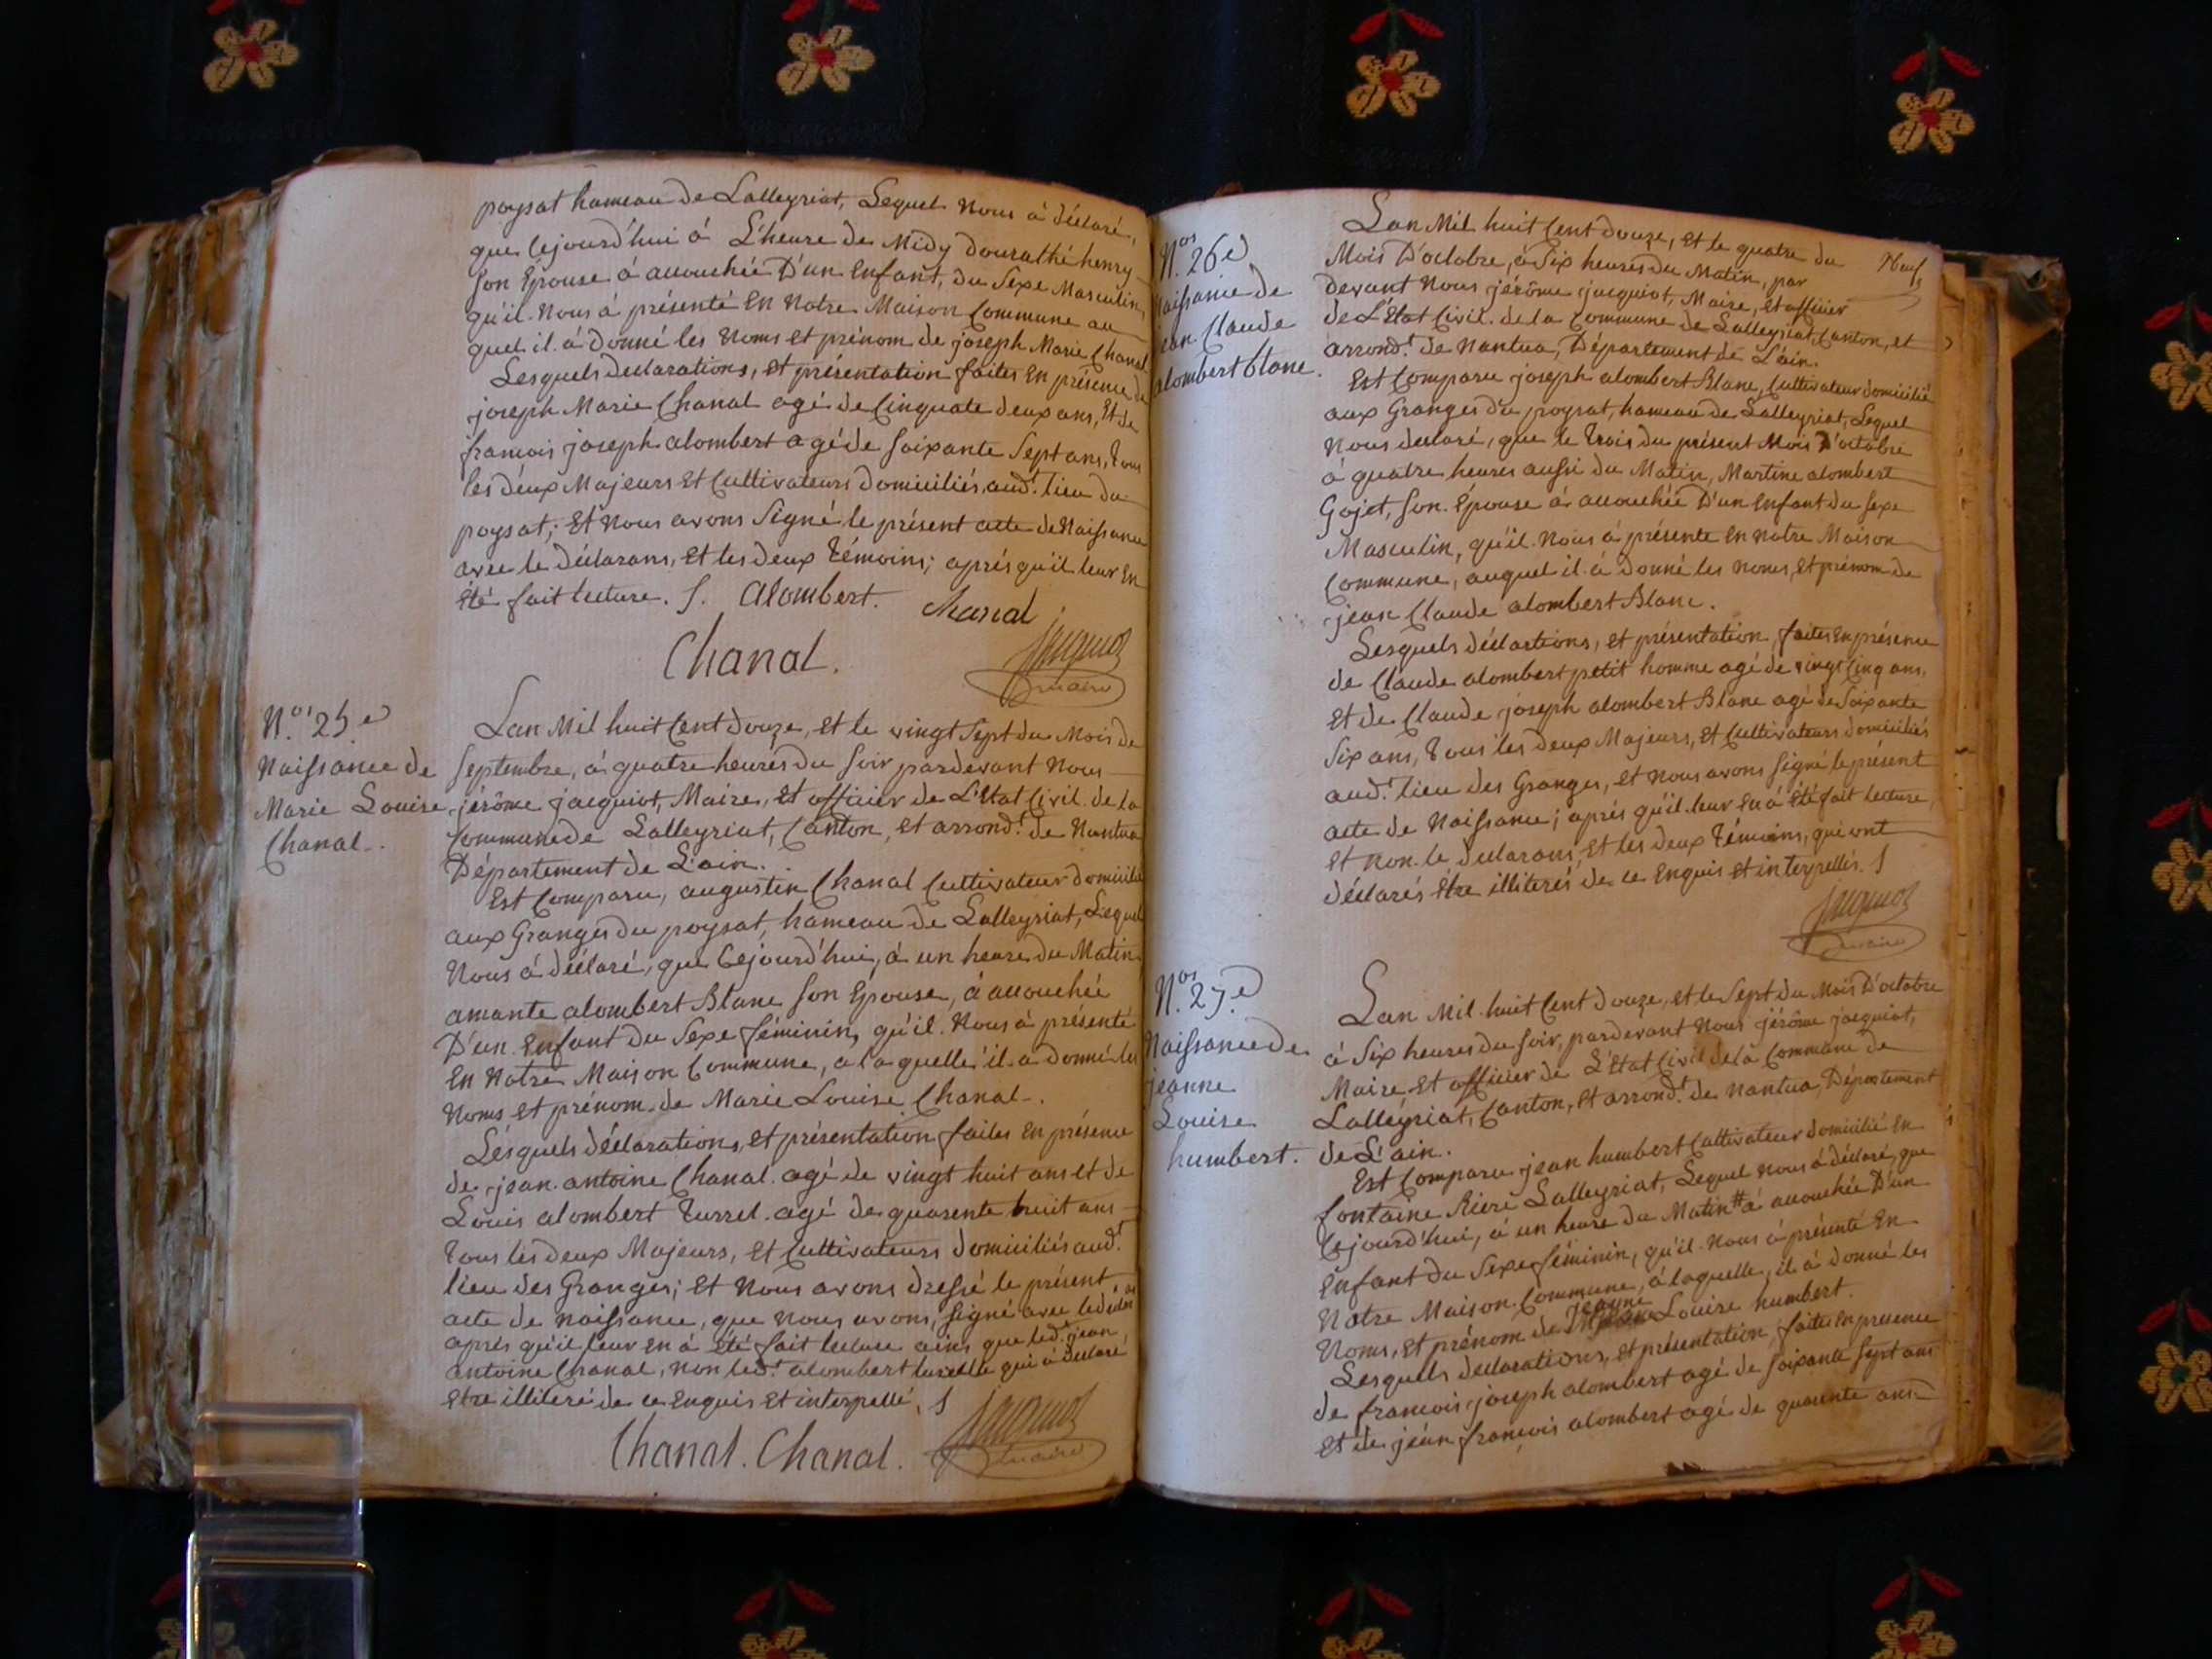 poysat hameau de Lalleyriat, Lequel Nous à déclaré,
que Cejourd'hui à L'heure de Midy Dourathé henry
son Epouse à accouchée D'un Enfant, du Sexe Masculin,
qu'il Nous à présenté En Notre Maison Commune au
quel il à donné les Noms et prénom de joseph Marie Chanal
Lesquels declarations, et présentation faites En présence de
joseph Marie Chanal agé de Cinquate deux ans, Et de
francois joseph alombert agé de soixante Sept ans, tous
les deux Majeurs et Cultivateurs Domiciliés, aud.t lieu du
poysat; Et Nous avons Signé le présent acte de Naissance
avec le Déclarans, et les deux Témoins; après qu'il leur En
Eté fait lecture. S. Alombert. Chanal
Chanal. Jacquiot
maire
N.os 25.e
Naissance de
Marie Louise
Chanal.
Lan Mil huit Cent Douze, Et le vingt Sept du Mois de
Septembre, à quatre heures du Soir pardevant Nous
jérôme jacquiot, Maire, Et officier de L'Etat Civil de la
Commune de Lalleyriat, Canton, et arrond.t de Nantua
Département de L'ain.
Est Comparu, augustin Chanal Cultivateur domicilié
aux Granges du poysat, hameau de Lalleyriat, Lequel
Nous à déclaré, que Cejourd'hui, à un heure du Matin
amante alombert Blanc son Epouse, à accouchée
D'un Enfant du Sexe féminin, qu'il Nous à présenté
En Notre Maison Commune, a laquelle il a donné les
Noms et prénom de Marie Louise Chanal.
Lésquels déclarations, et présentation faites En présence
de jean antoine Chanal agé de vingt huit ans et de
Louis alombert Turrel agé de quarente huit ans
tous les deux Majeurs, et Cultivateurs domiciliés aud.t
lieu des Granges; et Nous avons dressé le présent
acte de naissance, que Nous avons, signé avec le déclarans
après qu'il leur en à été fait lecture ains que led.t jean
antoine Chanal, non led.t alombert qui à declaré
Etre illiteré de ce Enquis et interpellé, S
Chanal. Chanal. Jacquiot
maire
Neuf
N.os 26.e
Naissance de
jean Claude
alombert blanc.
Lan Mil huit Cent douze, et le quatre du
Mois D'octobre, à Six heures du Matin, par
devant Nous jérôme jacquiot, Maire, et officier
de L'Etat Civil de la Commune de Lalleyriat, Canton, et
arrond.t de Nantua, Département de L'ain.
Est Comparu joseph alombert Blanc, Cultivateur domicilié
aux Granges du poysat, hameau de Lalleyriat, Lequel
Nous declaré, que le trois du présent Mois D'octobre
à quatre heures aussi du Matin, Martine alombert
Gojet, son Epouse à accouchée D'un Enfant du sexe
Masculin, qu'il Nous à présente en Notre Maison
Commune, auquel il à donné les Noms, et prénom de
jean Claude alombert Blanc.
Lesquels déclartions, et présentation, faites en présence
de Claude alombert petit homme agé de vingt Cinq ans,
Et de Claude joseph alombert Blanc agé de Soixante
Six ans, tous les deux Majeurs, et Cultivateurs domiciliés
aud.t lieu des Granges, et Nous avons signé le présent
acte de Naissance; après qu'il leur en à été fait lecture,
et Non le declarans, et les deux témoins, qui ont
déclarés être illiterés de ce Enquis et interpellés. S
Jacquiot
maire
N.os 27.e
Naissance de
jeanne
Louise
humbert.
Lan Mil huit Cent Douze, et le Sept du Mois D'octobre
à Six heures du Soir, pardevant Nous jérôme jacquiot,
Maire et officier de L'Etat Civil de la Commune de
Lalléyriat, Canton, et arrond.t de Nantua, Département
de L'ain.
Est Comparu jean humbert Cultivateur domicilié en
fontaine Riere Lalleyriat, Lequel Nous à déclaré, que
Cejourd'hui, à un heure du Matin # à accouchée D'un
Enfant du Sexe féminin, qu'il Nous à présenté En
Notre Maison Commune, à laquelle, il à donné les
jeanne
Noms, et prénom de Louise humbert.
Lesquels declarations, et présentation, faites en presence
de francois joseph alombert agé de soixante Sept ans
et de jean françois alombert agé de quarente ans